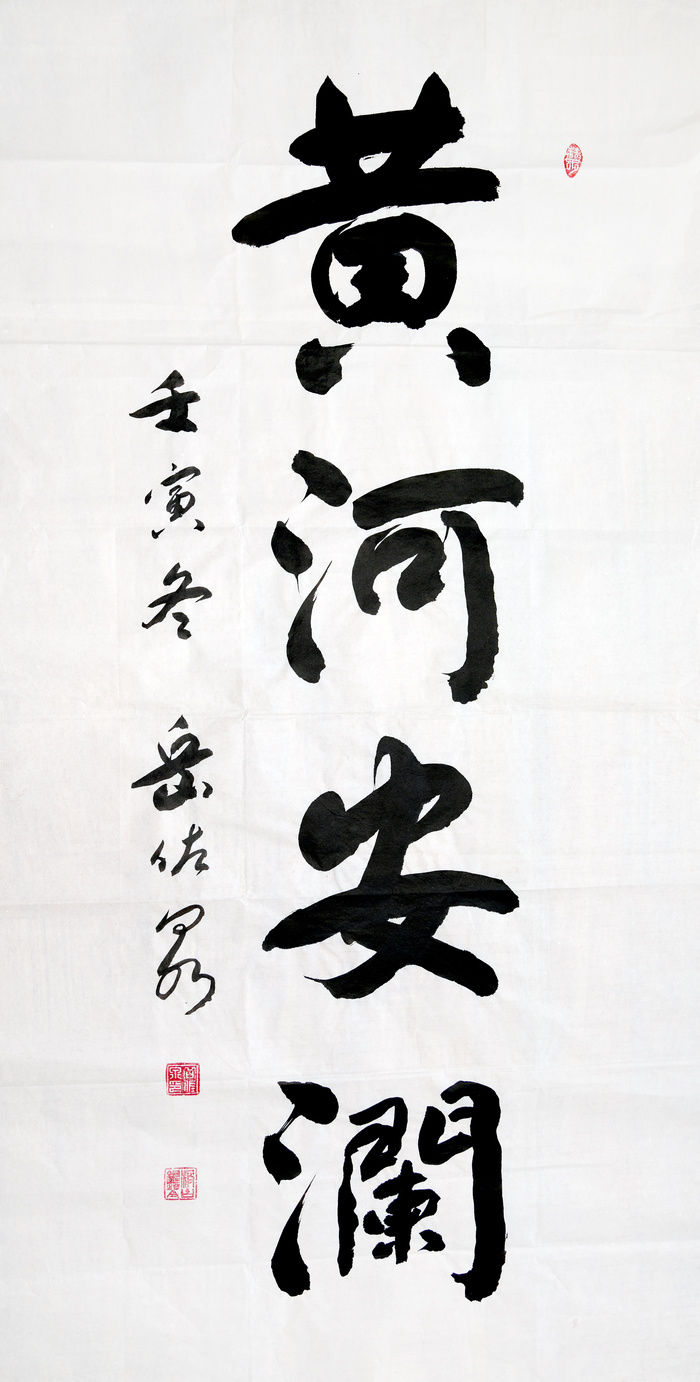 黄河安澜
壬寅冬 岳佑泉